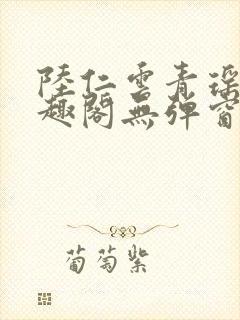 陸仁雲青瑤
趣閣無彈窗
葡萄紫